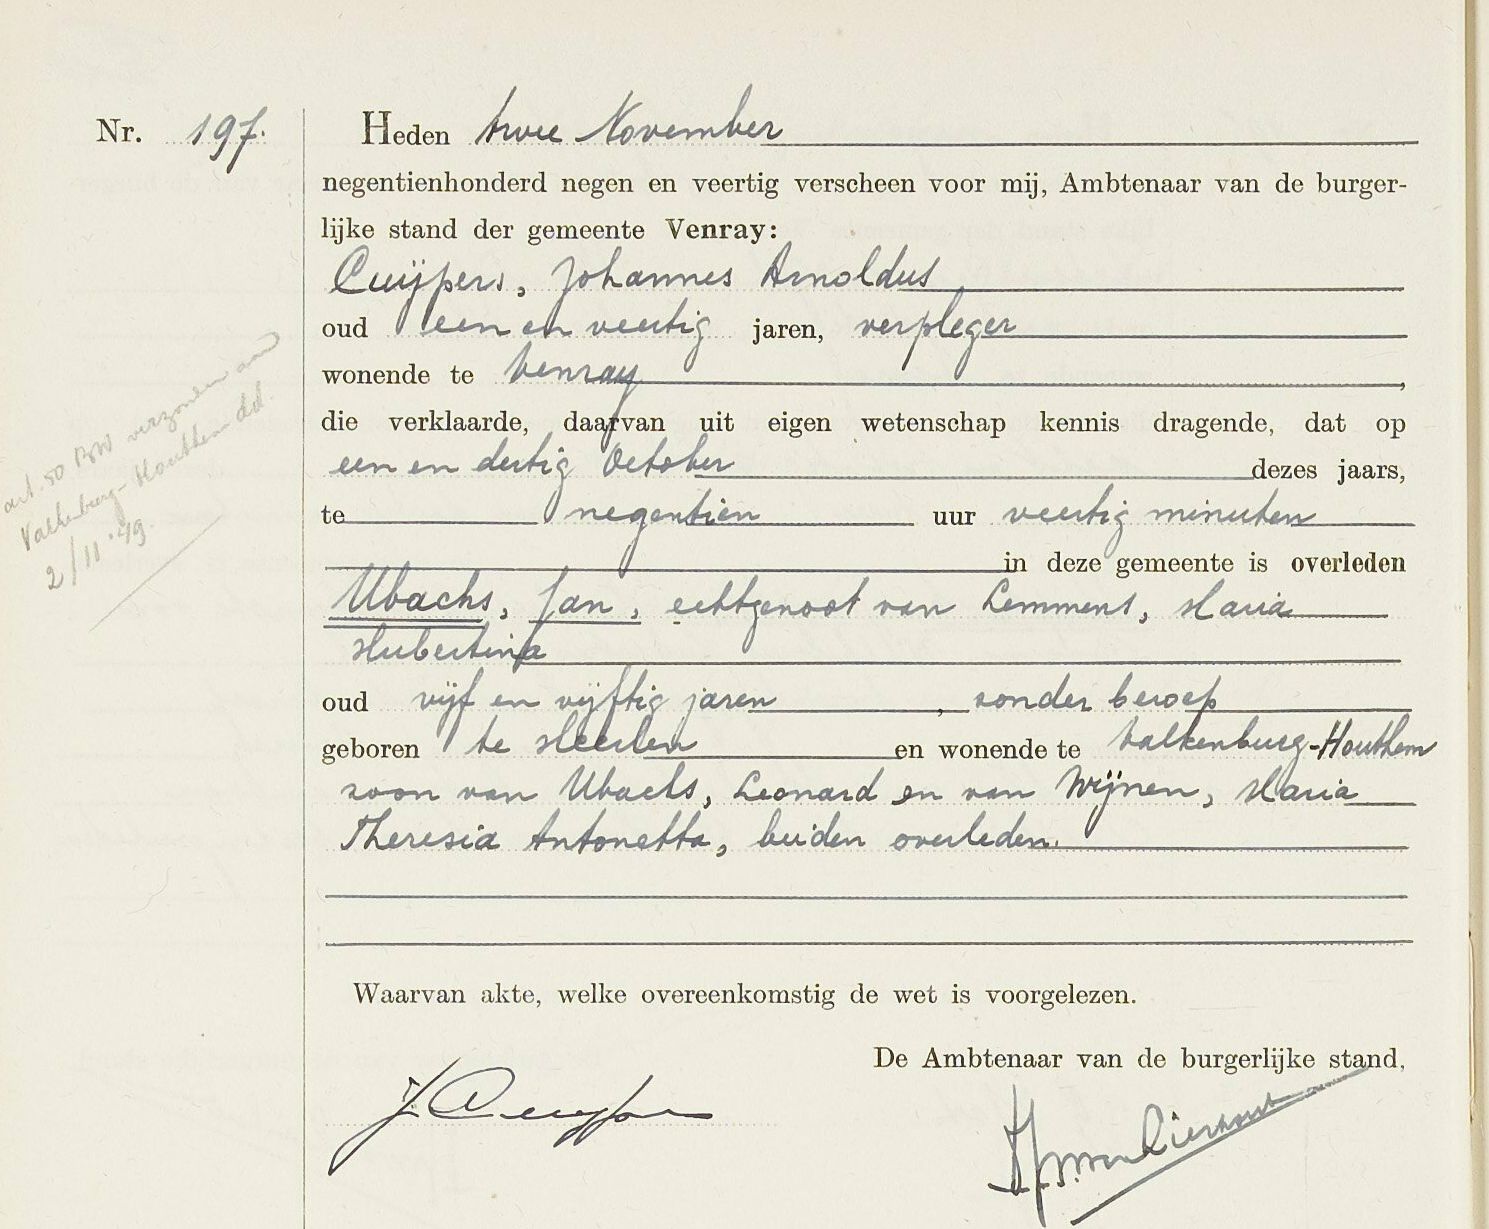 Nr. 197.
Heden twee November
negentienhonderd negen en veertig verscheen voor mij, Ambtenaar van de burger-
lijke stand der gemeente Venray:
Cuijpers, Johannes Arnoldus
oud een en veertig jaren, verpleger
wonende te Venray,
die verklaarde, daarvan uit eigen wetenschap kennis dragende, dat op
een en dertig October dezes jaars,
te negentien uur veertig minuten
in deze gemeente is overleden
Ubachs, Jan, echtgenoot van Lemmens, Maria
Hubertina
oud vijf en vijftig jaren, zonder beroep
geboren te Heerlen en wonende te Valkenburg-Houthem
zoon van Ubachs, Leonard en van Wijnen, Maria
Theresia Antonetta, beiden overleden.
Waarvan akte, welke overeenkomstig de wet is voorgelezen.
De Ambtenaar van de burgerlijke stand,
J Cuijpers
art. 50 BW verzonden aan
Valkenburg-Houthem dd.
2/11 '49.